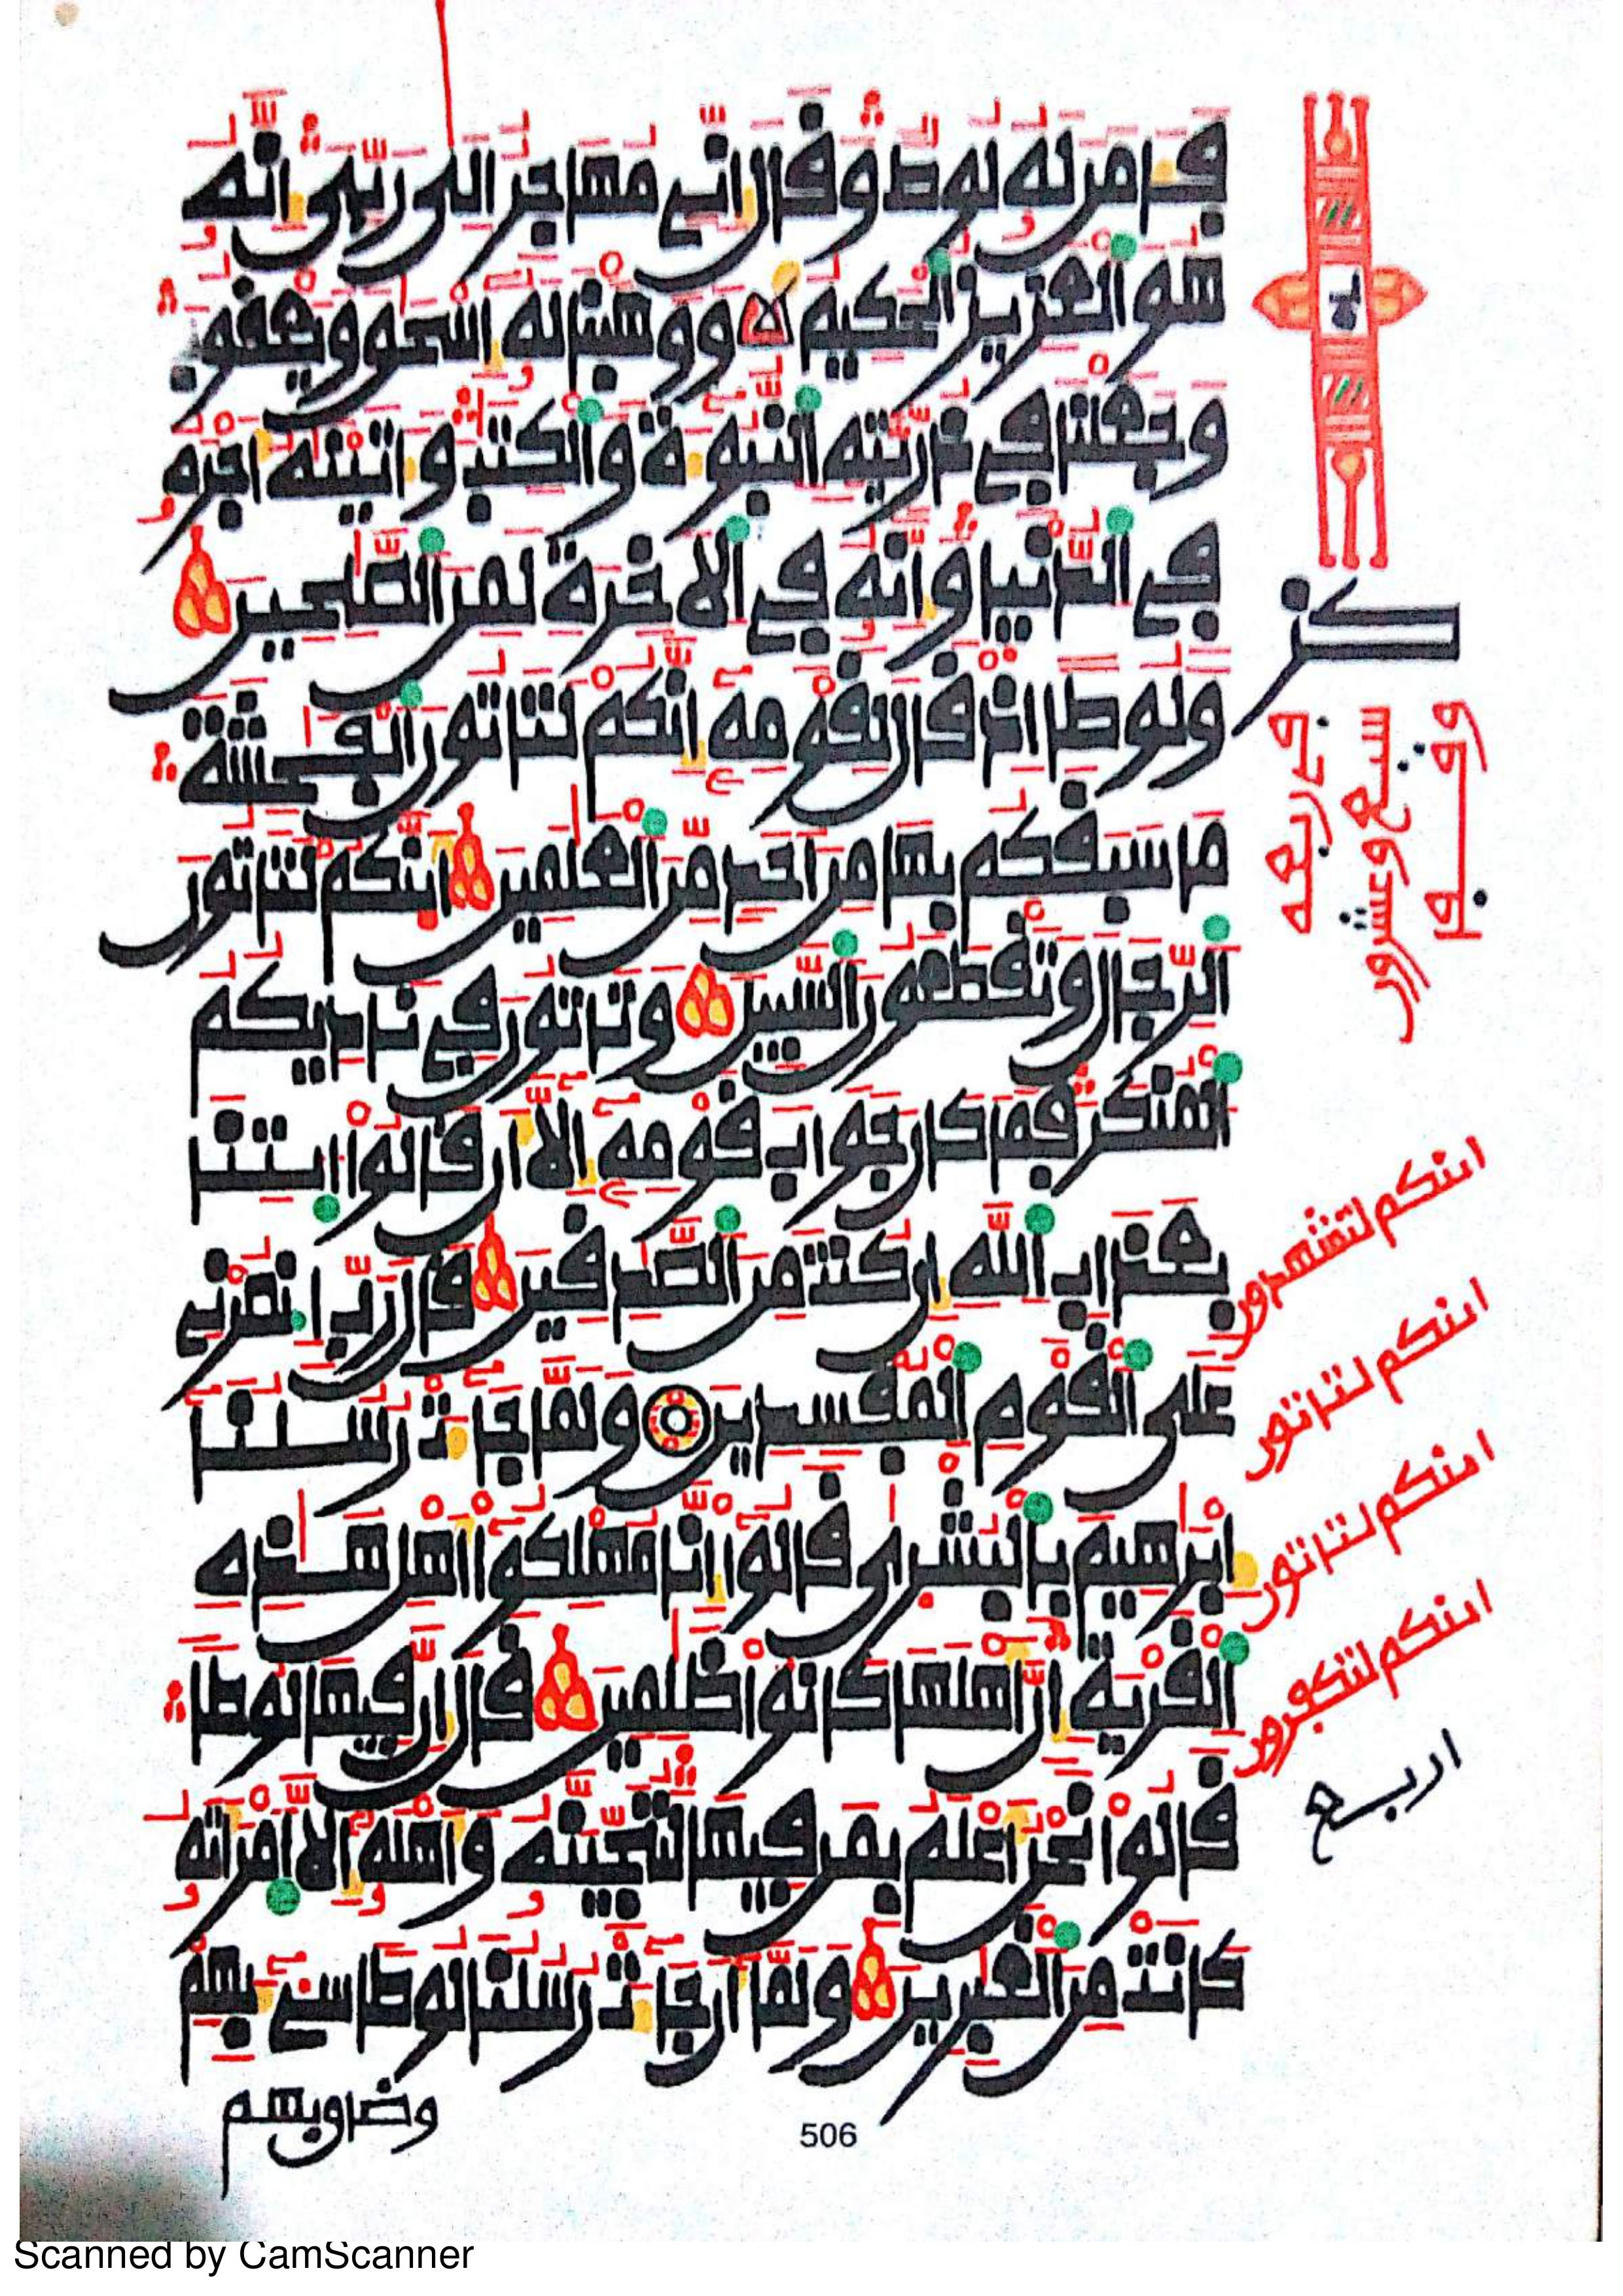 فـَٔامن له لوط وفال انى مهاجر الى ربى انه
هو العزيز الحكيم ووهبنا له اسحو ويعفوب
وجعلنا في ذريته النبوءة والكتب وءاتينه اجره
في الدنيا وانه في الاخرة لمن الصلحين
ولوطا اذ فال لفومه انكم لتاتون الفحشة
ما سبفكم بها من احد من العلمين اينكم لتاتون
الرجال وتفطعون السبيل وتاتون في ناديكم
المنكر فما كان جواب فومه الا ان فالوا ايتنا
بعذاب الله ان كنت من الصدفين فال رب انصرنى
على الفوم المفسدين ولما جاءت رسلنا
ابرهيم بالبشرى فالوا انا مهلكوا اهل هذه
الفرية ان اهلها كانوا ظلمين فال ان فيها لوطا
فالوا نحن اعلم بمن فيها لننجينه واهله الا امراته
كانت من الغبرين ولما ان جاءت رسلنا لوطا سىء بهم
وضاوبهم
506
كز
سبع وعشرون
اينكم لتشهدون
اينكم لتاتون
اينكم لتاتون
اينكم لتكفرون
اربع
Scanned by CamScanner